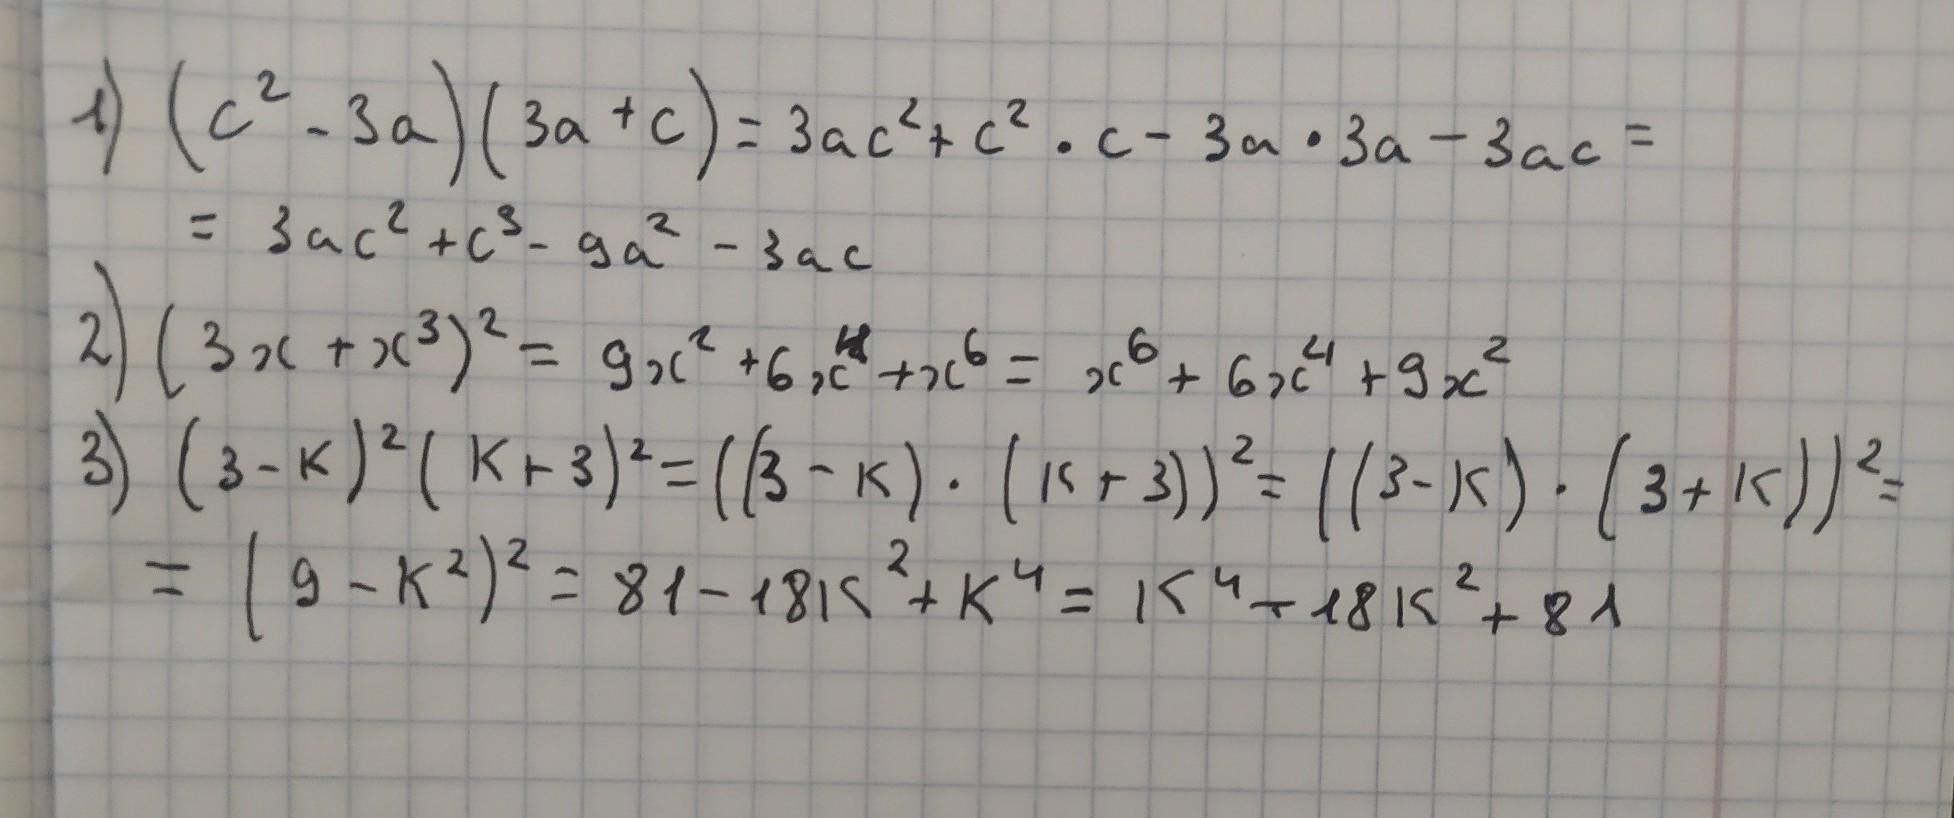 1) (c² - 3a)(3a + c) = 3ac² + c² · c - 3a · 3a - 3ac =
= 3ac² + c³ - 9a² - 3ac
2) (3x + x³)² = 9x² + 6x⁴ + x⁶ = x⁶ + 6x⁴ + 9x²
3) (3 - K)² (K + 3)² = ((3 - K) · (K + 3))² = ((3 - K) · (3 + K))² =
= (9 - K²)² = 81 - 18K² + K⁴ = K⁴ - 18K² + 81